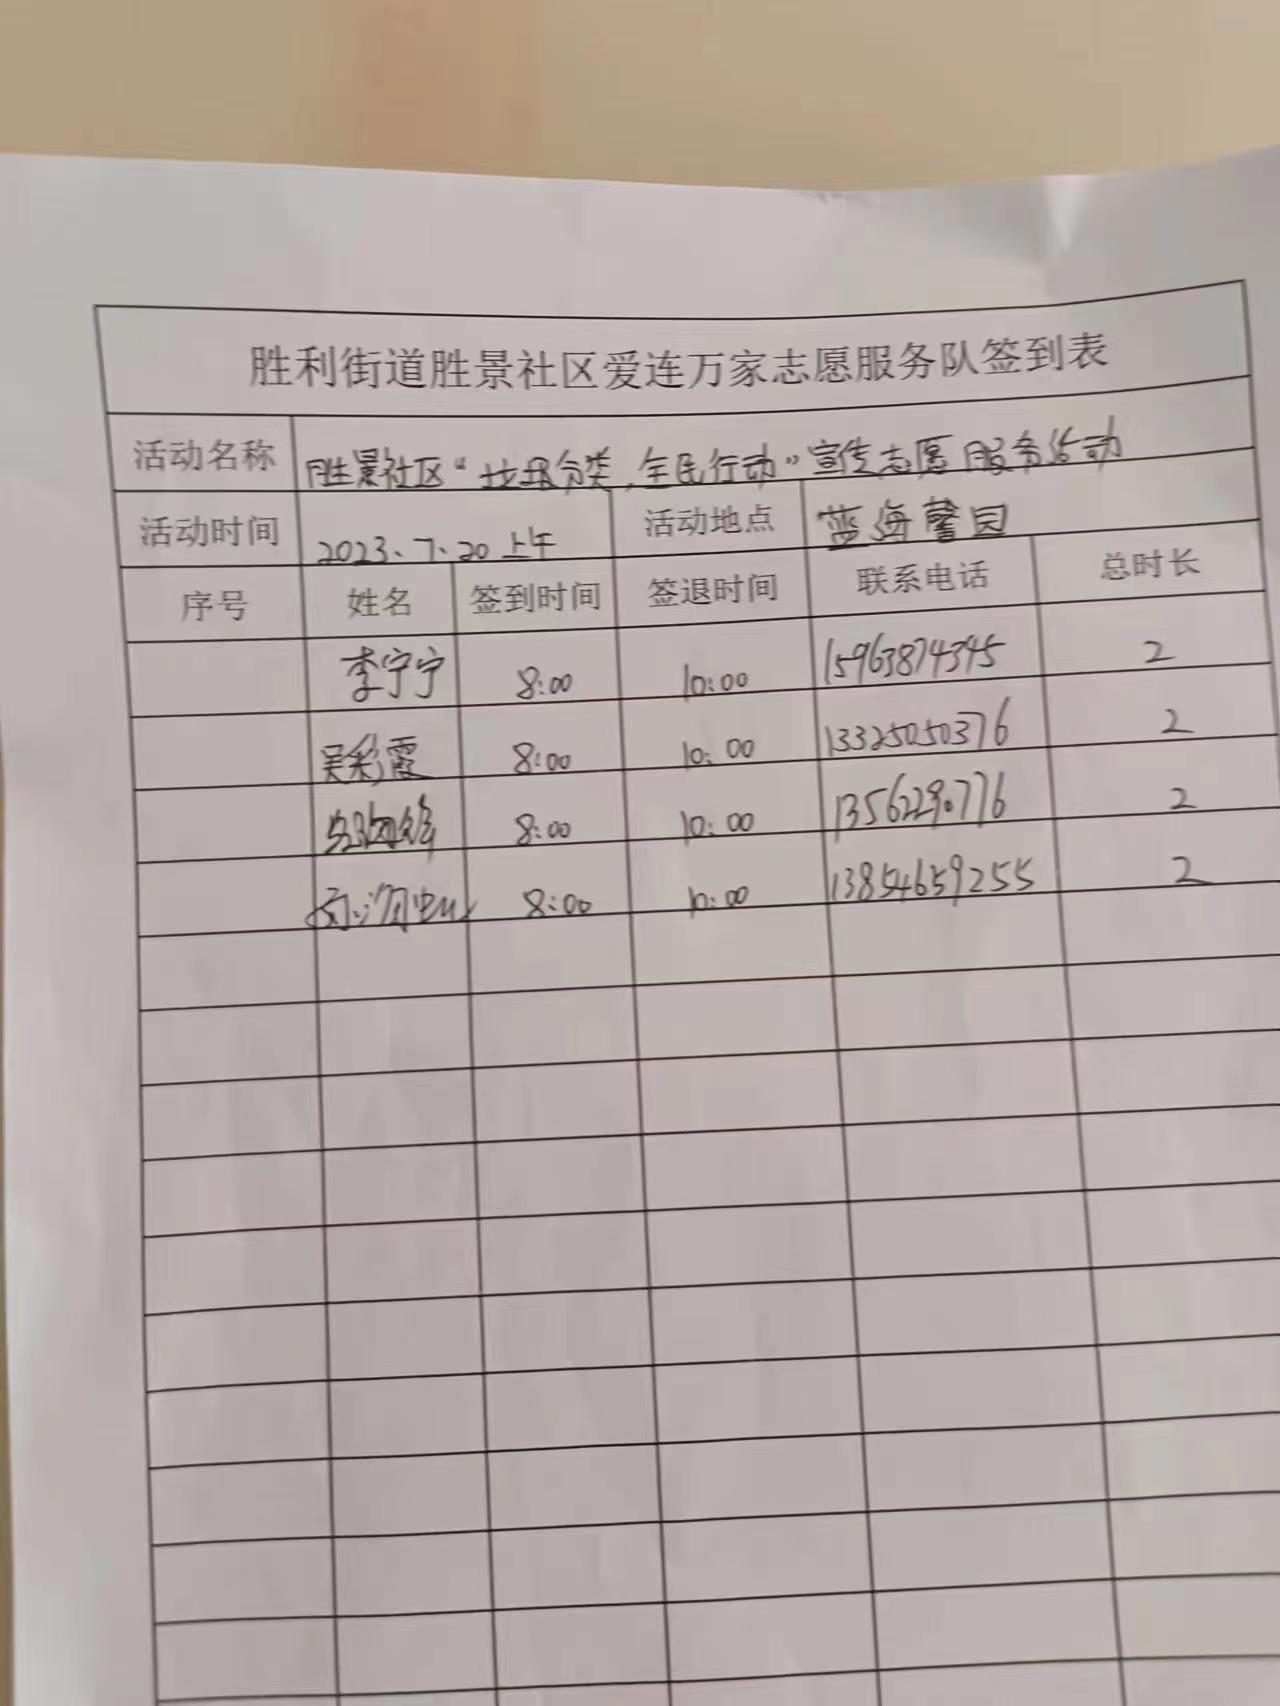 胜利街道胜景社区爱连万家志愿服务队签到表
活动名称 胜景社区“垃圾分类，全民行动”宣传志愿服务活动
活动时间 2023、7、20上午 活动地点 蓝海馨园
序号 姓名 签到时间 签退时间 联系电话 总时长
李宁宁 8:00 10:00 15963874345 2
吴彩霞 8:00 10:00 13325050376 2
8:00 10:00 2
8:00 10:00 13854659255 2